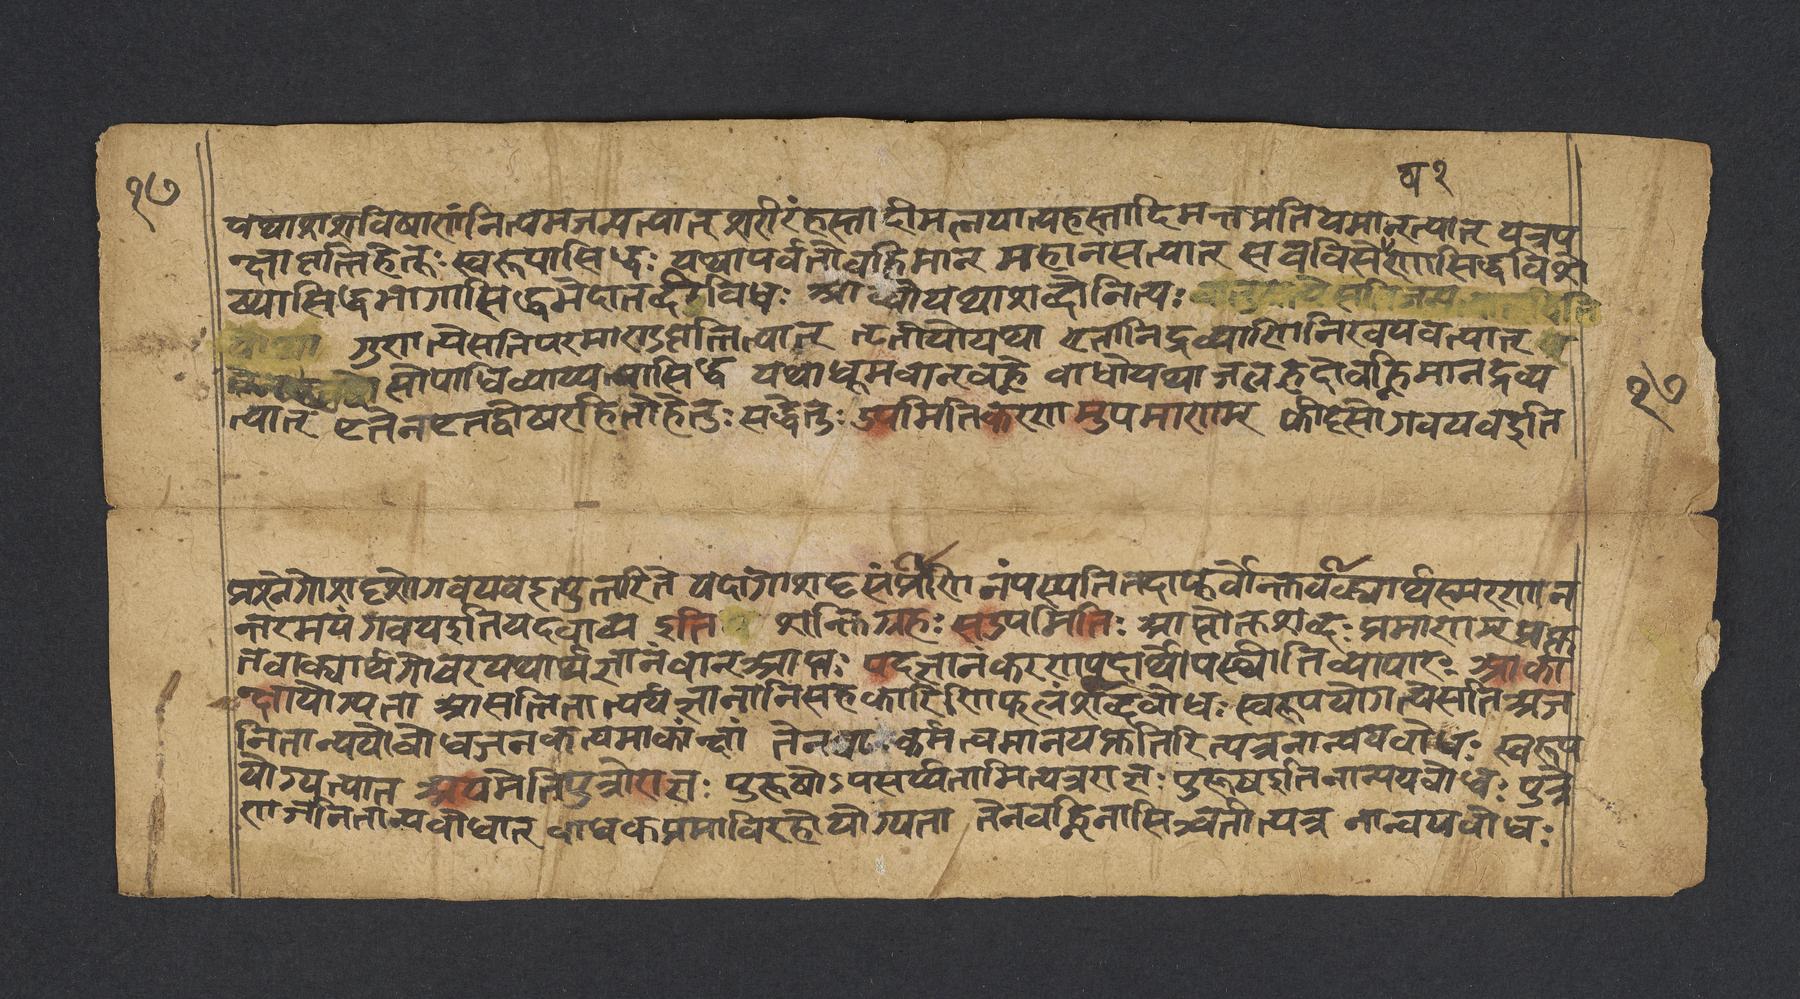 १७
ष १
यथाशशविषाणंनित्यमजन्यत्वात् शरीरंहस्तादीमत्वयात्यहस्तादिमन्तप्रतियमानत्वात् यत्रप
क्षावृत्तिहेतुः स्वरूपासिद्धः यथापर्वतोवह्निमान् महानसत्वात् सचविसेषणासिद्धविशे
ष्यासिद्धभागासिद्धभेदात् विधः आद्योयथाशब्दोनित्यः
गुणत्वेसतिपरमाणुवृत्तित्वात् तृतीयोयथा एतानिद्रव्याणिनिरवयवत्वात्
सोपाधिव्याप्यत्वासिद्ध यथाधूमवान्वह्ने वाधोयथाजलह्रदोवह्निमानद्रव्य
त्वात् एतेनएतद्दोषरहितोहेतुः सद्धेतुः उपमितिकरणमुपमाणम् कीदृसोगवयवइति
१७
प्रश्नेगोशदृशोगवयवइत्युत्तरिते यदागोशदृसंप्राणिनंपस्यतितदापूर्वोक्तवाक्यार्थस्मरणान
न्तरमयं गवयइतियदवाच्य इति शक्तिग्रहः सउपमितिः आप्तोक्तशब्दः प्रमाणम् प्रकृ
तवाक्यार्थगोचरयथार्थज्ञानंवानआप्तः पदज्ञानंकरणंपदार्थोपस्थीतिव्यापारः आकां
क्षायोग्यता आसत्तितात्पर्यज्ञानानिसहकारिणिफलंशाब्दवोधः स्वरूपयोगत्वेसतिअज
नितान्वयवोधजनकत्वमाकांक्षा तेन कर्मत्वमानयकृतिरित्यत्रनान्वयवोधः स्वरूप
योग्यत्वात् अयमेतिपुत्रोराज्ञः पुरुषोऽपसार्य्यतामित्यत्रराज्ञः पुरूषइतिनान्वयवोधः पुत्रे
णजनितान्वयवोधात् वाधकप्रमाविरहोयोग्यता तेनवह्निनासिञ्चतीत्यत्र नान्वयवोधः